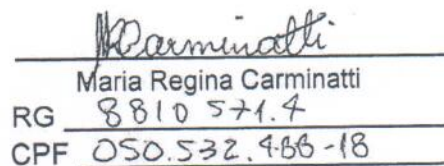 MCarminatti
Maria Regina Carminatti
RG 8810571.4
CPF 050.532.488-18